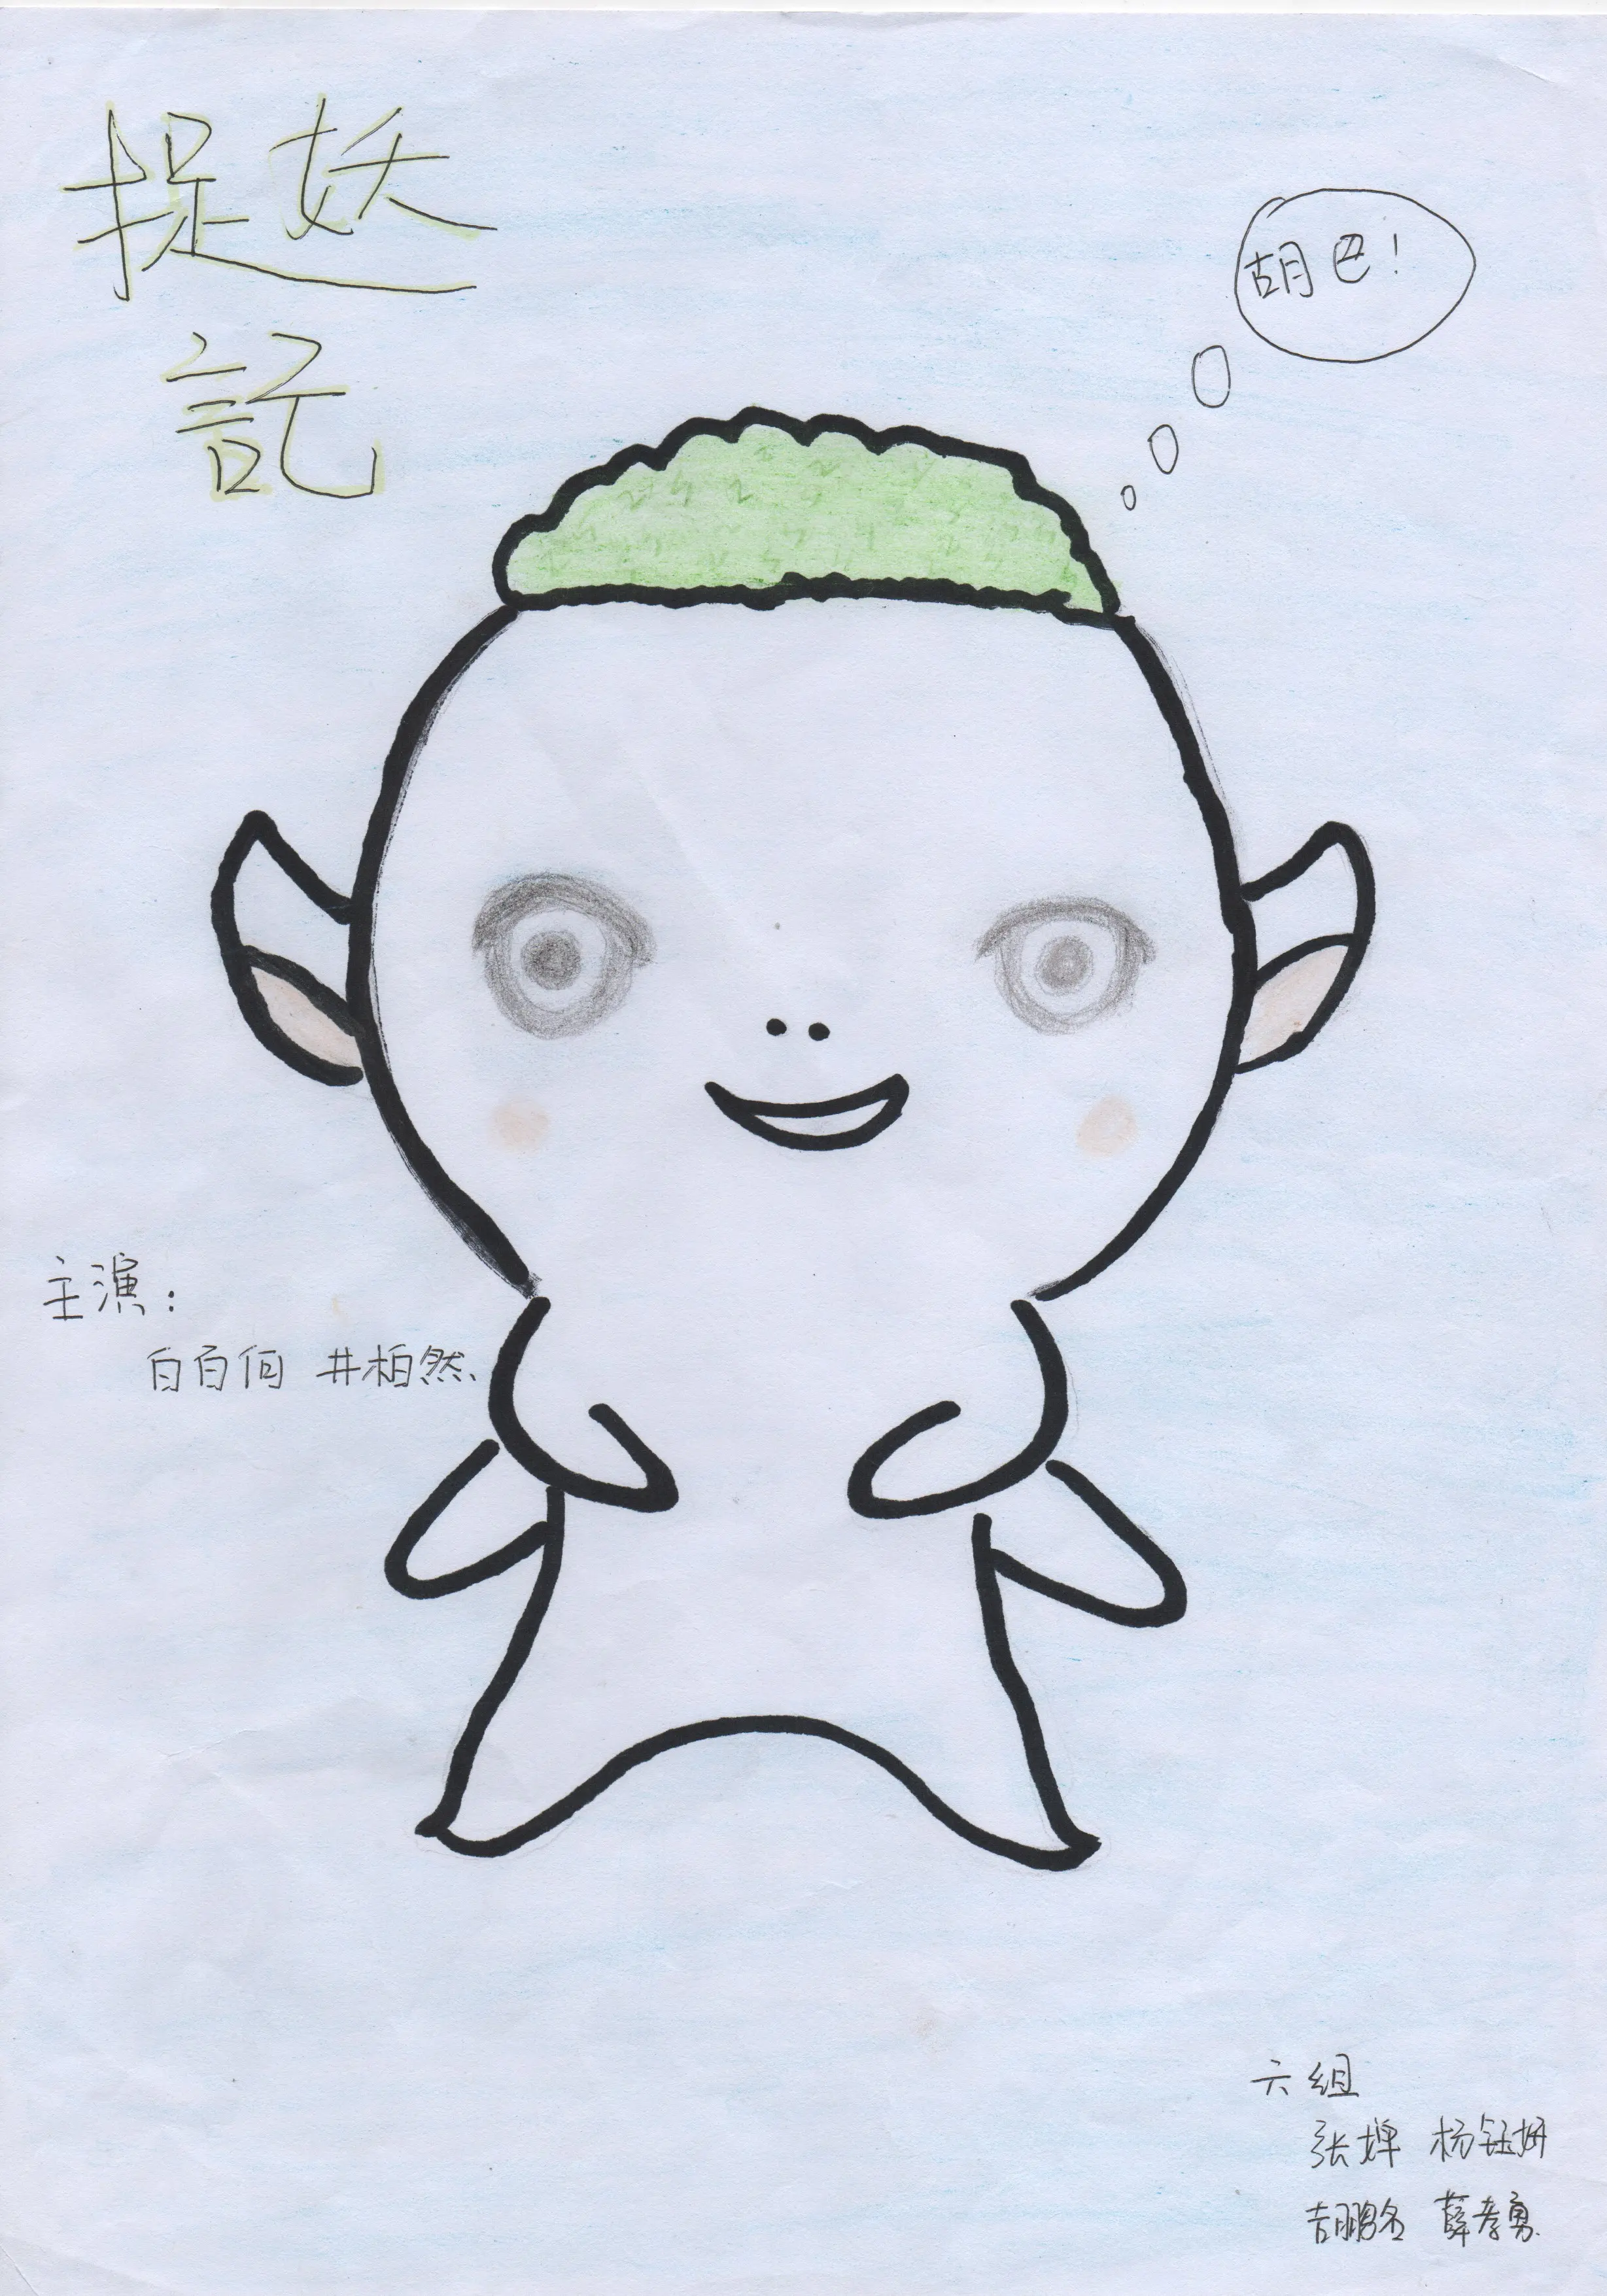 捉妖
記
胡巴!
主演:
白百何 井柏然
六组
张婵 杨钰妍
胡鹏名 薛孝勇